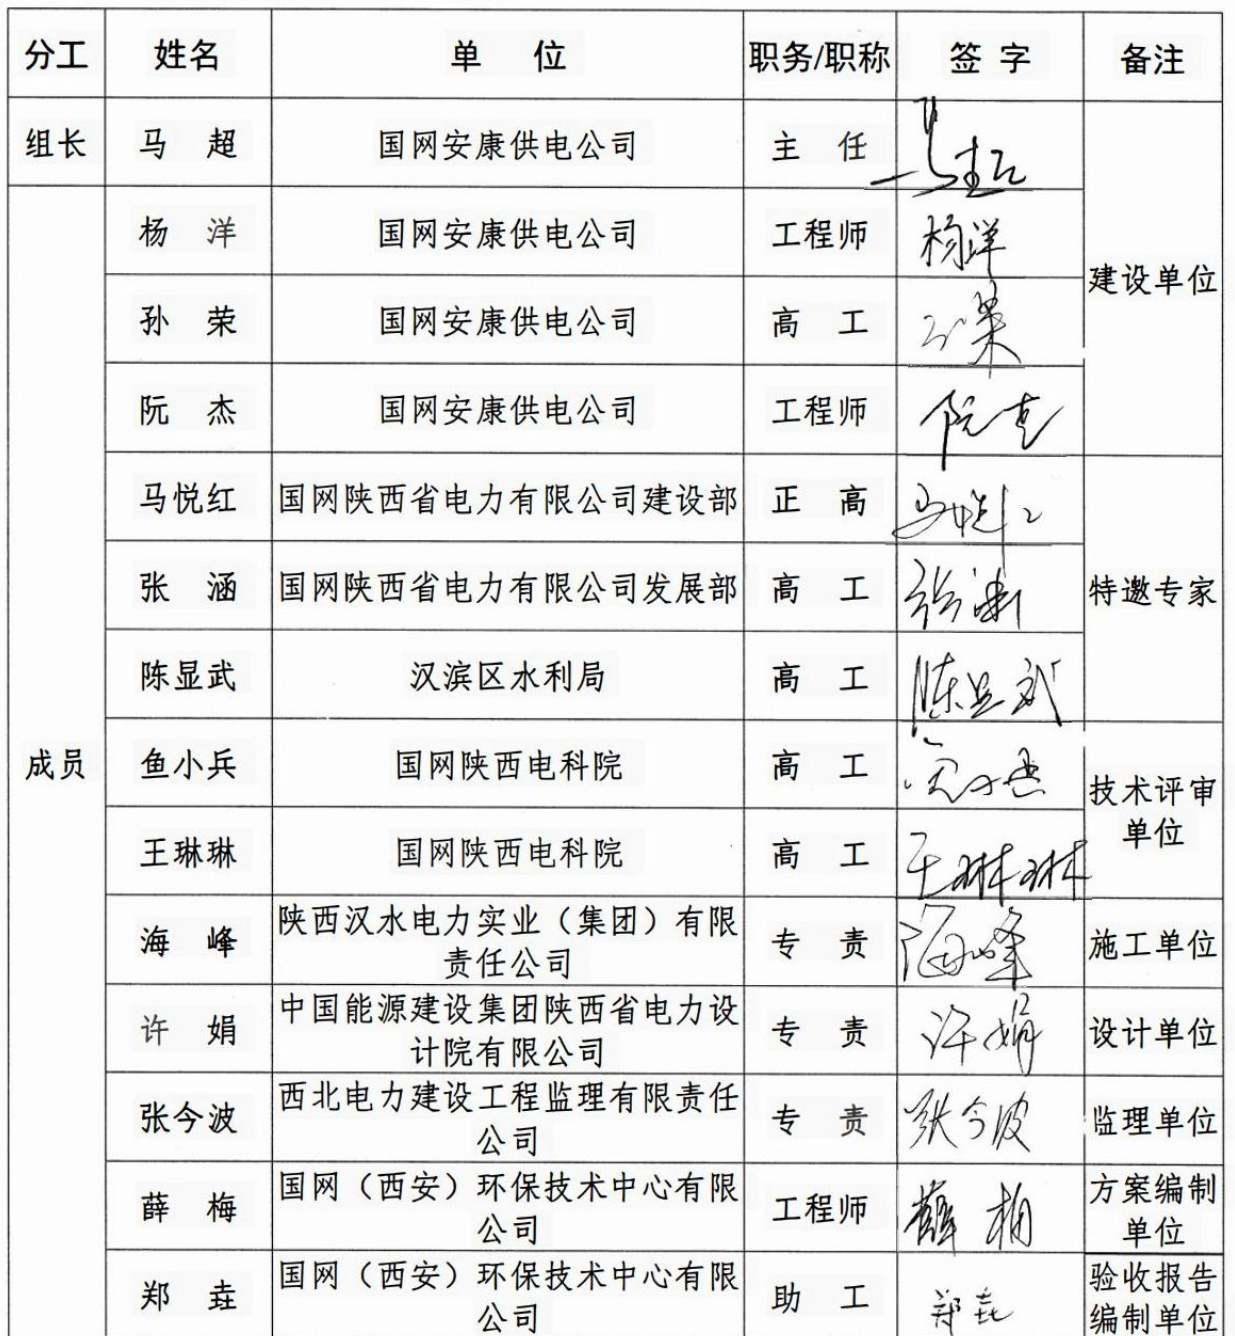 分工 姓名 单 位 职务/职称 签 字 备注
组长 马 超 国网安康供电公司 主 任 马超
杨 洋 国网安康供电公司 工程师 杨洋
建设单位
孙 荣 国网安康供电公司 高 工 孙荣
阮 杰 国网安康供电公司 工程师 阮杰
马悦红 国网陕西省电力有限公司建设部 正 高 马悦红
张 涵 国网陕西省电力有限公司发展部 高 工 张涵 特邀专家
陈显武 汉滨区水利局 高 工 陈显武
成员 鱼小兵 国网陕西电科院 高 工
技术评审
单位
王琳琳 国网陕西电科院 高 工 王琳琳
海 峰 陕西汉水电力实业（集团）有限
责任公司 专 责 海峰 施工单位
许 娟 中国能源建设集团陕西省电力设
计院有限公司 专 责 许娟 设计单位
张今波 西北电力建设工程监理有限责任
公司 专 责 张今波 监理单位
薛 梅 国网（西安）环保技术中心有限
公司 工程师 薛梅 方案编制
单位
郑 垚 国网（西安）环保技术中心有限
公司 助 工 郑垚 验收报告
编制单位